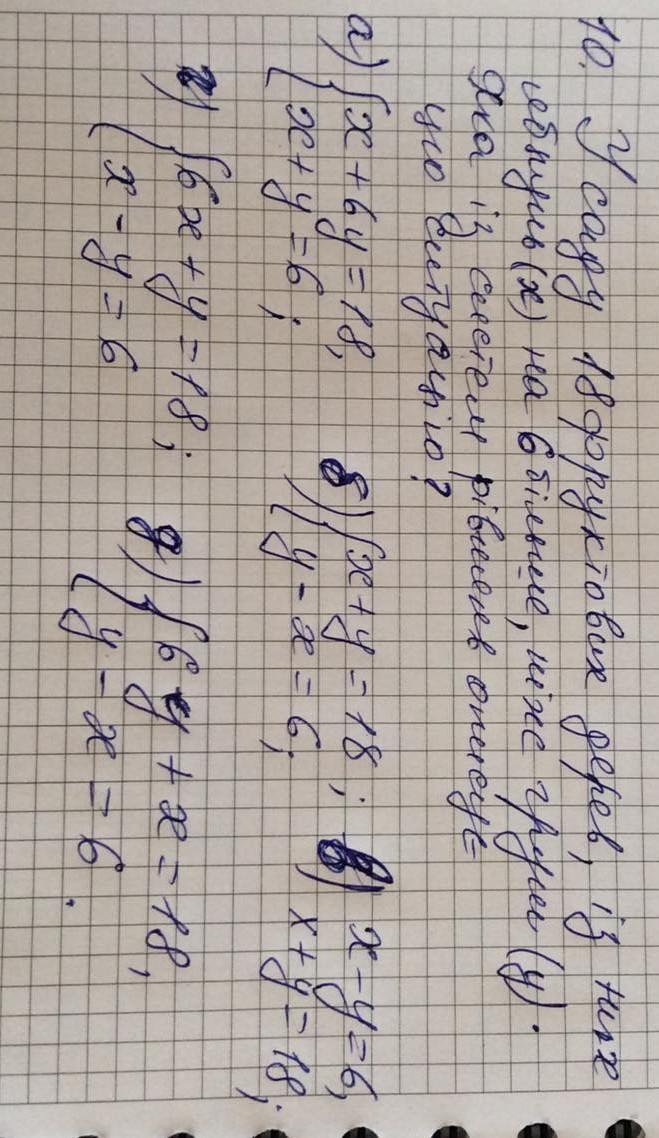 10. У саду 18 фруктових дерев, із них
яблунь (x) на 6 більше, ніж груш (y).
Яка із систем рівнянь описує
цю ситуацію?
а) { x + 6y = 18, б) { x + y = 18; в) x - y = 6,
x + y = 6; y - x = 6; x + y = 18;
г) { 6x + y = 18; д) { 6y + x = 18,
x - y = 6 y - x = 6.